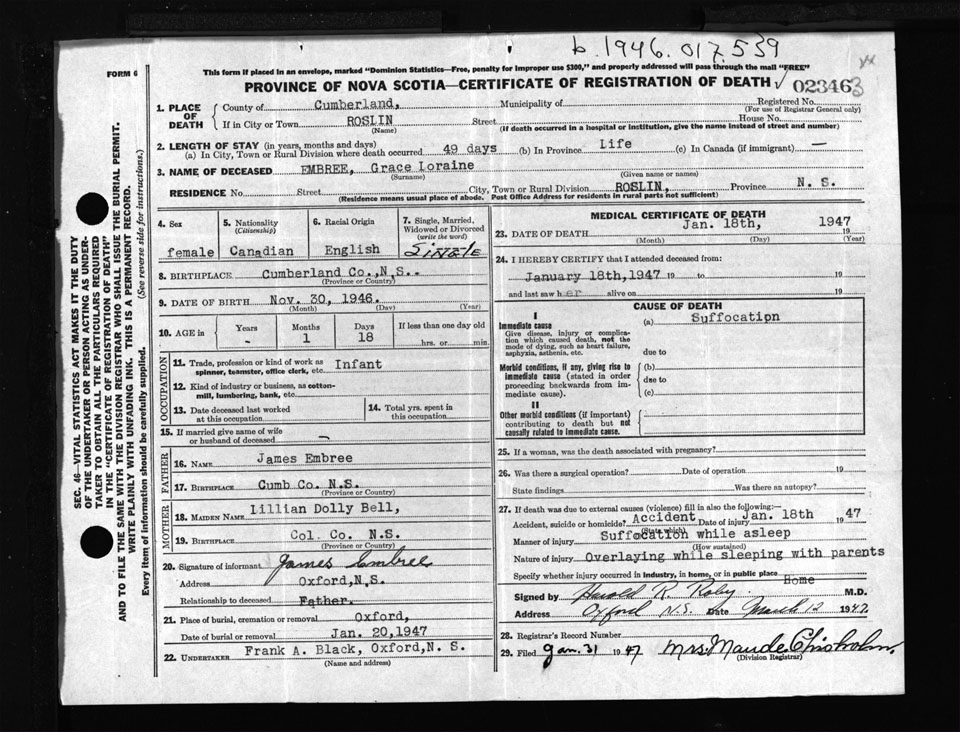 b. 1946. 017539
FORM 6
This form if placed in an envelope, marked "Dominion Statistics—Free, penalty for improper use $300," and properly addressed will pass through the mail "FREE"
PROVINCE OF NOVA SCOTIA—CERTIFICATE OF REGISTRATION OF DEATH ✓ 023463
1. PLACE OF DEATH
County of Cumberland, Municipality of Registered No.
(For use of Registrar General only)
If in City or Town ROSLIN Street House No.
(Name) (If death occurred in a hospital or institution, give the name instead of street and number)
2. LENGTH OF STAY (in years, months and days)
(a) In City, Town or Rural Division where death occurred 49 days (b) In Province Life (c) In Canada (if immigrant) —
3. NAME OF DECEASED EMBREE, Grace Loraine
(Surname) (Given name or names)
RESIDENCE No. Street City, Town or Rural Division ROSLIN, Province N. S.
(Residence means usual place of abode. Post Office Address for residents in rural parts not sufficient)
4. Sex
female
5. Nationality
(Citizenship)
Canadian
6. Racial Origin
English
7. Single, Married, Widowed or Divorced
(write the word)
Single
8. BIRTHPLACE Cumberland Co., N.S..
(Province or Country)
9. DATE OF BIRTH Nov. 30, 1946.
(Month) (Day) (Year)
10. AGE in Years Months Days If less than one day old
- 1 18 hrs. or min.
OCCUPATION
11. Trade, profession or kind of work as spinner, teamster, office clerk, etc. Infant
12. Kind of industry or business, as cotton-mill, lumbering, bank, etc.
13. Date deceased last worked at this occupation
14. Total yrs. spent in this occupation
15. If married give name of wife or husband of deceased –
FATHER
16. NAME James Embree
17. BIRTHPLACE Cumb Co. N.S.
(Province or Country)
MOTHER
18. MAIDEN NAME Lillian Dolly Bell,
19. BIRTHPLACE Col. Co. N.S.
(Province or Country)
20. Signature of informant James Embree
Address Oxford, N.S.
Relationship to deceased Father.
21. Place of burial, cremation or removal Oxford,
Date of burial or removal Jan. 20, 1947
22. UNDERTAKER Frank A. Black, Oxford, N. S.
(Name and address)
MEDICAL CERTIFICATE OF DEATH
23. DATE OF DEATH Jan. 18th, 1947 19
(Month) (Day) (Year)
24. I HEREBY CERTIFY that I attended deceased from:
January 18th, 1947 19 to 19
and last saw her alive on 19
CAUSE OF DEATH
I
Immediate cause
Give disease, injury or complication which caused death, not the mode of dying, such as heart failure, asphyxia, asthenia, etc.
(a) Suffocation
due to
Morbid conditions, if any, giving rise to immediate cause (stated in order proceeding backwards from immediate cause).
(b)
due to
(c)
II
Other morbid conditions (if important) contributing to death but not causally related to immediate cause.
25. If a woman, was the death associated with pregnancy?
26. Was there a surgical operation? Date of operation 19
State findings Was there an autopsy?
27. If death was due to external causes (violence) fill in also the following:—
Accident, suicide or homicide? Accident Date of injury Jan. 18th 1947
(State which)
Manner of injury Suffocation while asleep
(How sustained)
Nature of injury Overlaying while sleeping with parents
Specify whether injury occurred in industry, in home, or in public place Home
Signed by Harold R. Roby M.D.
Address Oxford N.S. Date March 12 1947
28. Registrar's Record Number
29. Filed Jan. 31 1947 Mrs. Maude Chisholm.
(Division Registrar)
SEC. 46—VITAL STATISTICS ACT MAKES IT THE DUTY
OF THE UNDERTAKER OR PERSON ACTING AS UNDER-
TAKER TO OBTAIN ALL THE PARTICULARS REQUIRED
IN THE "CERTIFICATE OF REGISTRATION OF DEATH"
AND TO FILE THE SAME WITH THE DIVISION REGISTRAR WHO SHALL ISSUE THE BURIAL PERMIT.
WRITE PLAINLY WITH UNFADING INK. THIS IS A PERMANENT RECORD.
Every item of information should be carefully supplied. (See reverse side for instructions.)